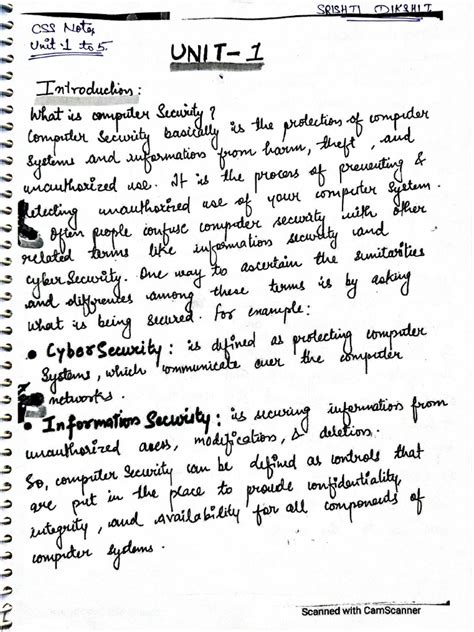 SRISHTI DIKSHIT
CSS Notes
Unit-1 to 5.
UNIT-1
Introduction:
What is computer Security?
Computer Security basically is the protection of computer
systems and information from harm, theft, and
unauthorized use. It is the process of preventing &
detecting unauthorized use of your computer system.
Often people confuse computer security with other
related terms like information security and
cyberSecurity. One way to ascertain the similarities
and differences among these terms is by asking
what is being secured. For example:
• CyberSecurity: is defined as protecting computer
Systems, which communicate over the computer
networks.
• Information Security: is securing information from
unauthorized access, modification, & deletion.
So, computer Security can be defined as controls that
are put in the place to provide confidentiality,
integrity, and availability for all components of
computer systems.
Scanned with CamScanner